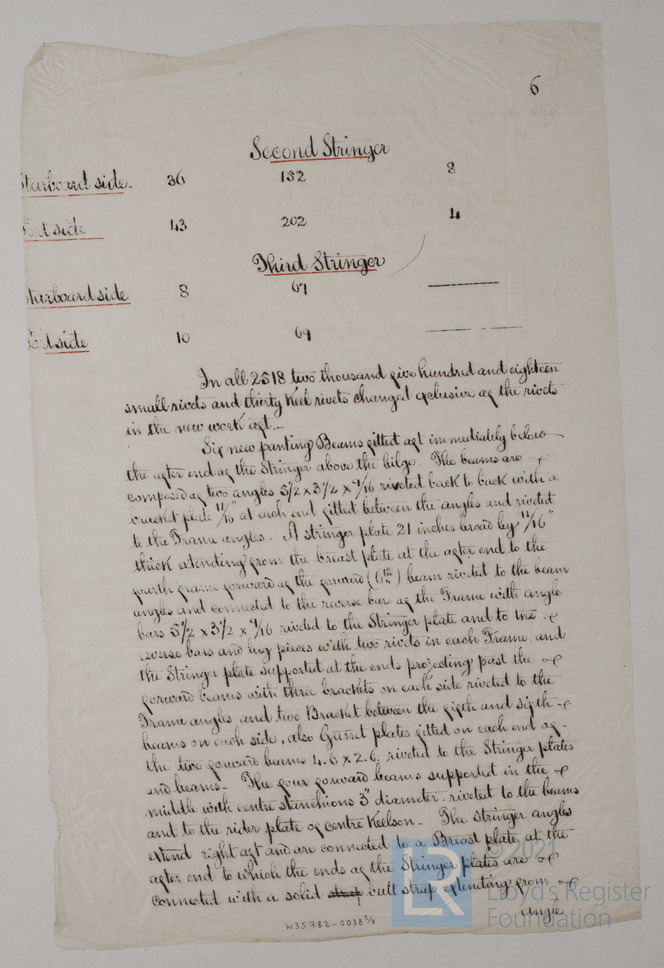 6
Second Stringer
Starboard side 36 152 8
Port side 43 202 4
Third Stringer
Starboard side 8 67 —
Port side 10 69 —
In all 2518 two thousand five hundred and eighteen
small rivets and thirty Keel rivets changed exclusive of the rivets
in the new work aft.
Six new panting Beams fitted aft immediately below
the after end of the Stringer above the bilge. The beams are
composed of two angles 5 1/2 x 3 1/2 x 9/16 riveted back to back with a
bracket plate 11/16" at each end fitted between the angles and riveted
to the Frame angles. A stringer plate 21 inches broad by 11/16"
thick extending from the breast plate at the after end to the
fourth frame forward of the forward (6th) beam riveted to the beam
angles and connected to the reverse bars of the Frame with angle
bars 5 1/2 x 3 1/2 x 9/16 riveted to the Stringer plate and to the
reverse bars and lug pieces with two rivets in each Frame, and
the Stringer plate supported at the ends projecting past the
forward beams with three brackets on each side riveted to the
Frame angles, and two Bracket between the fifth and sixth
beams on each side, also Gusset plates fitted on each end of
the two forward beams 4.6 x 2.6, riveted to the Stringer plates
and beams. The four forward beams supported in the
middle with centre stanchions 3" diameter, riveted to the beams
and to the rider plate of centre Keelson. The stringer angles
extend right aft and are connected to a Breast plate, at the
after end to which the ends of the Stringer plates are
connected with a solid strap butt strap extending from
angle
W35782-0038 3/4
LR
© 2021
Lloyd's Register
Foundation